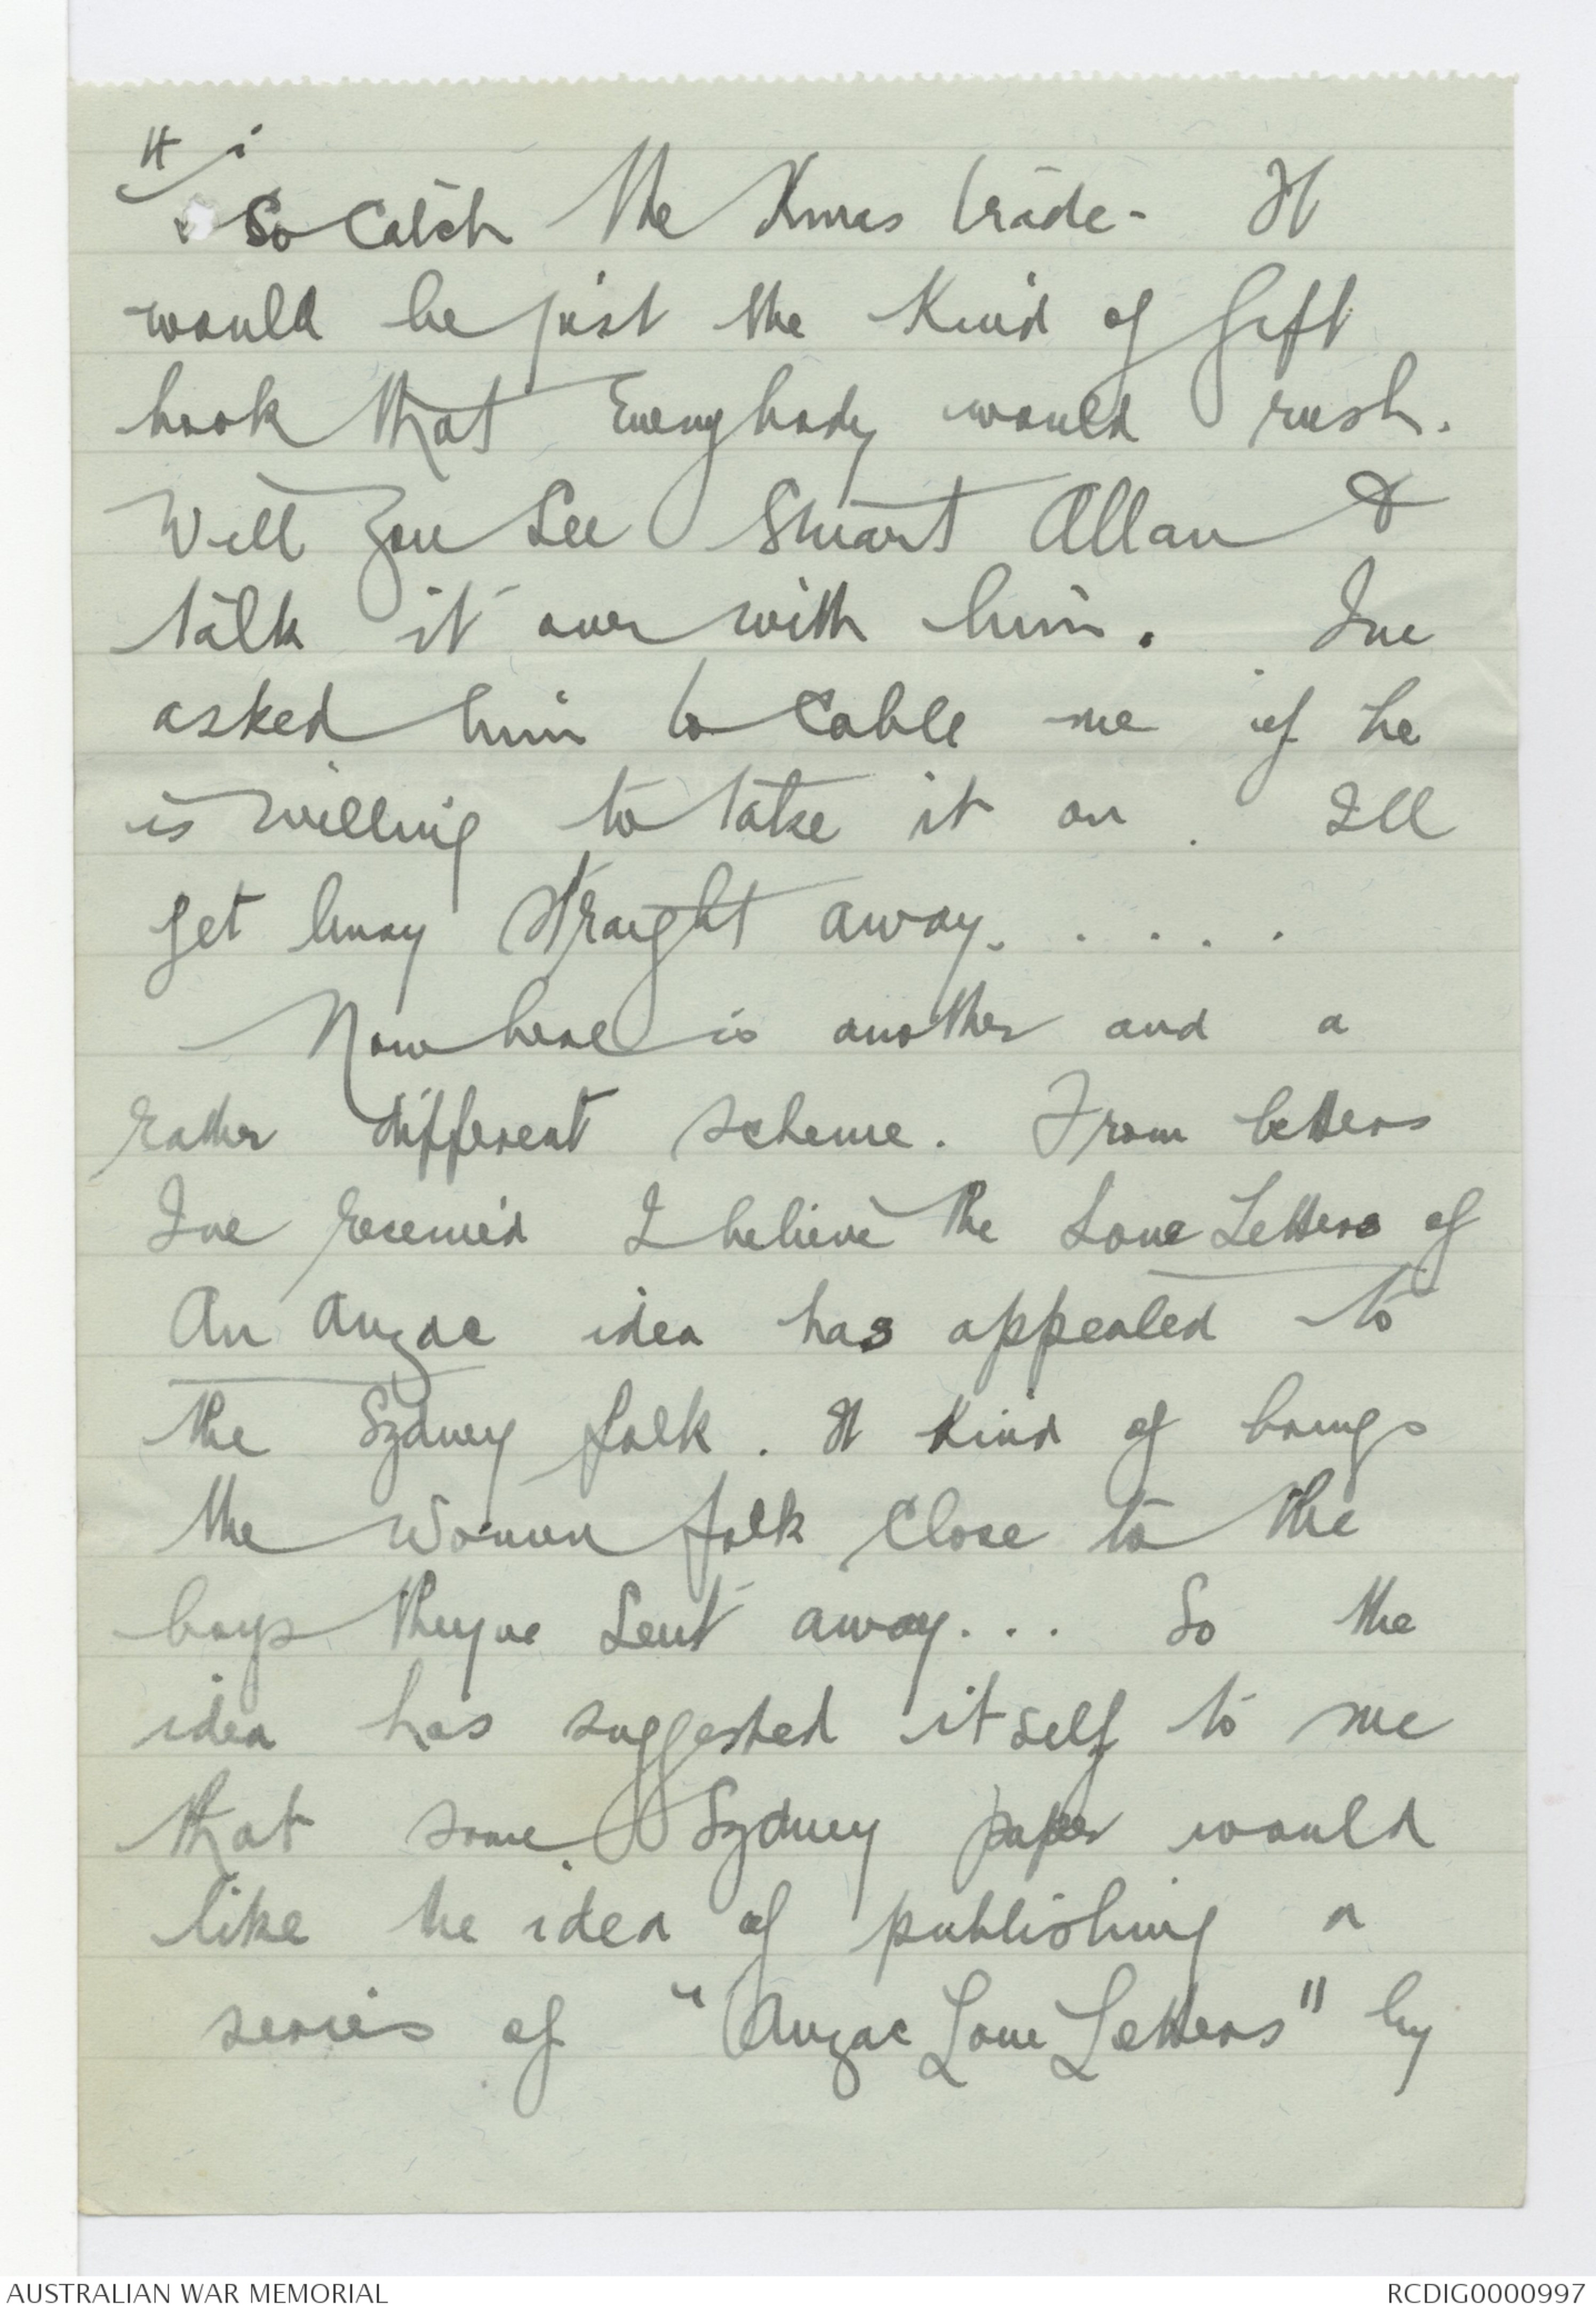 So catch the Xmas trade - It
would be just the kind of gift
book that everybody would rush.
Will you see Stuart Allan &
talk it over with him. Ive
asked him to cable me if he
is willing to take it on. Ill
get busy straight away. . . . .
Now here is another and a
rather different scheme. From letters
Ive received I believe the Love Letters of
An Anzac idea has appealed to
the Sydney folk. It kind of brings
the women folk close to the
boys theyve sent away. . . So the
idea has suggested itself to me
that some Sydney paper would
like the idea of publishing a
series of "Anzac Love Letters" by
AUSTRALIAN WAR MEMORIAL
RCDIG0000997